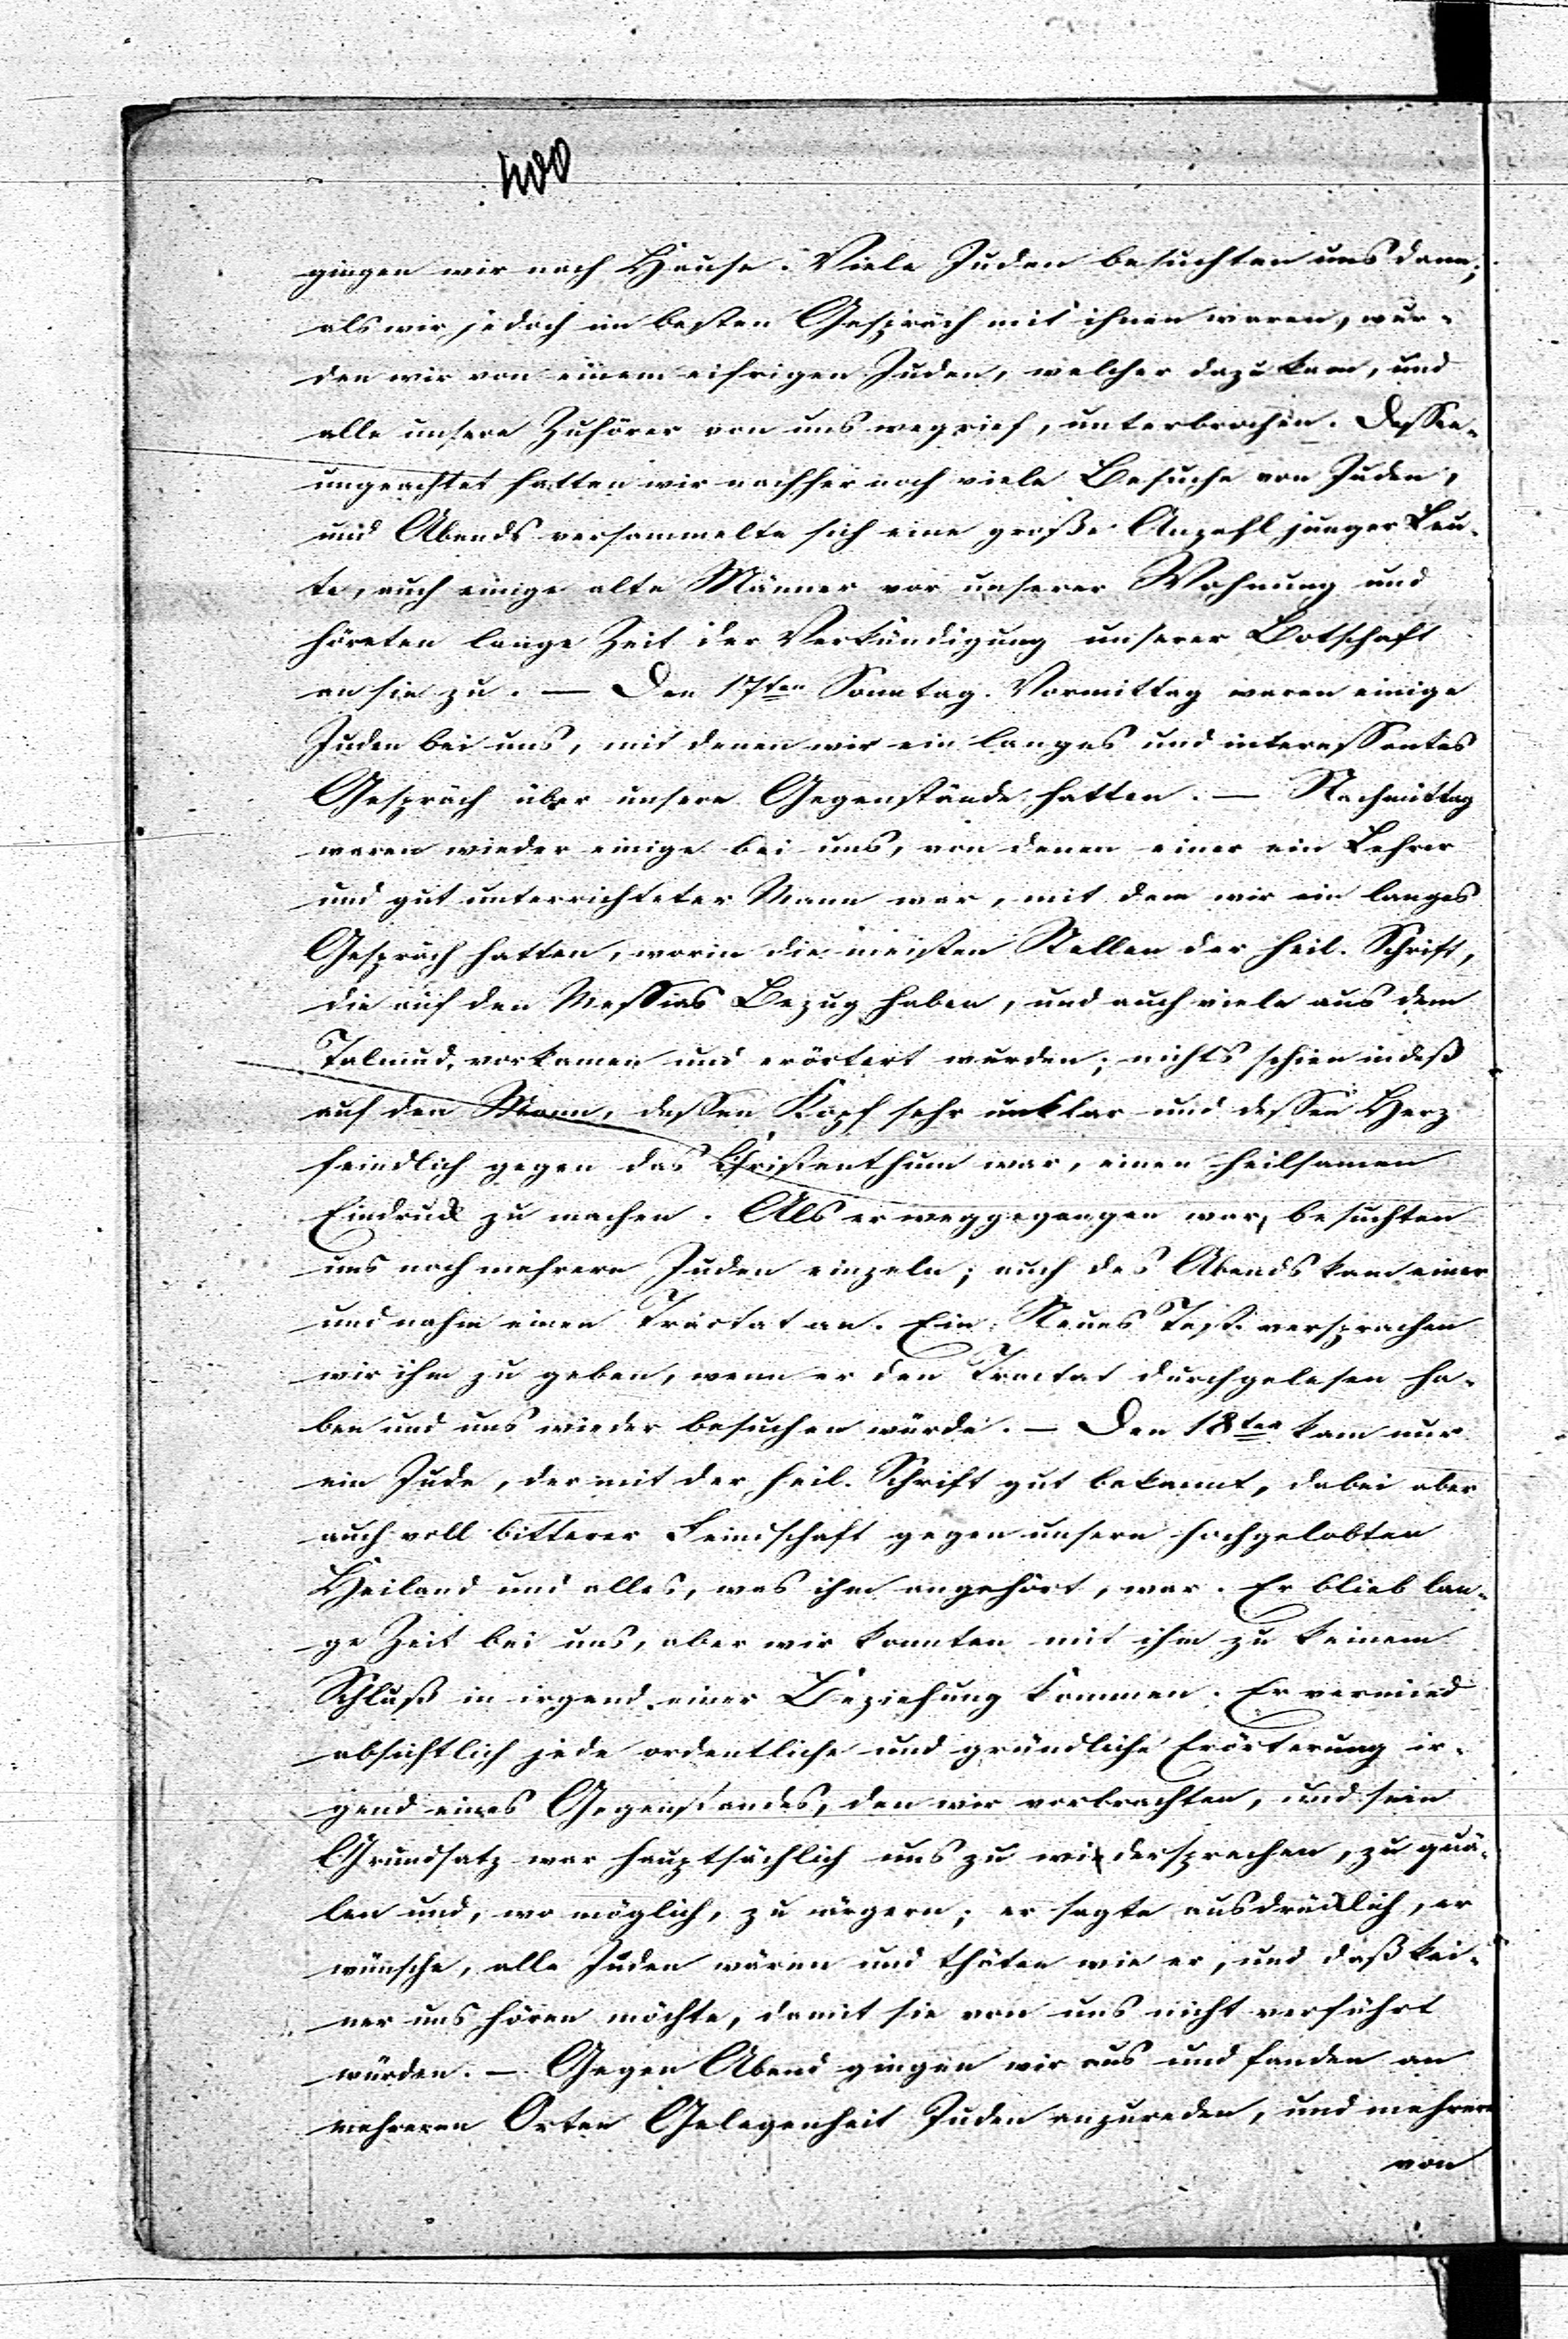 400
gingen wir nach Hause. Viele Juden besuchten uns dann;
als wir jedoch im besten Gespräch mit ihnen waren, wur-
den wir von einem eifrigen Juden, welcher dazu kam, und
alle unsere Zuhörer von uns wegrief, unterbrochen. Dessen-
ungeachtet hatten wir nachher noch viele Besuche von Juden,
und Abends versammelte sich eine große Anzahl junger Leu-
te, auch einige alte Männer vor unserer Wohnung und
hörten lange Zeit der Verkündigung unserer Botschaft
an sie zu. — Den 17ten Sonntag. Vormittag waren einige
Juden bei uns, mit denen wir ein langes und interessantes
Gespräch über unsere Gegenstände hatten. — Nachmittag
waren wieder einige bei uns, von denen einer ein Lehrer
und gut unterrichteter Mann war, mit dem wir ein langes
Gespräch hatten, worin die meisten Stellen der heil. Schrift,
die auf den Messias Bezug haben, und auch viele aus dem
Talmud, vorkamen und erörtert wurden; nichts schien indeß
auf den Mann, dessen Kopf sehr unklar und dessen Herz
feindlich gegen das Christenthum war, einen heilsamen
Eindruck zu machen. Als er weggegangen war, besuchten
uns noch mehrere Juden einzeln; auch des Abends kam einer
und nahm einen Tractat an. Ein Neues Test. versprachen
wir ihm zu geben, wenn er den Tractat durchgelesen ha-
ben und uns wieder besuchen würde. — Den 18ten kam nur
ein Jude, der mit der heil. Schrift gut bekannt, dabei aber
auch voll bitterer Feindschaft gegen unsern hochgelobten
Heiland und alles, was ihm angehört, war. Er blieb lan-
ge Zeit bei uns, aber wir konnten mit ihm zu keinem
Schluß in irgend einer Beziehung kommen. Er vermied
absichtlich jede ordentliche und gründliche Erörterung ir-
gend eines Gegenstandes, den wir vorbrachten, und sein
Grundsatz war hauptsächlich uns zu widersprechen, zu quä-
len und, wo möglich, zu ärgern; er sagte ausdrücklich, er
wünsche, alle Juden wären und thäten wie er, und daß kei-
ner uns hören möchte, damit sie von uns nicht verführt
würden. — Gegen Abend gingen wir aus und fanden an
mehreren Orten Gelegenheit Juden anzureden, und mehrere
von